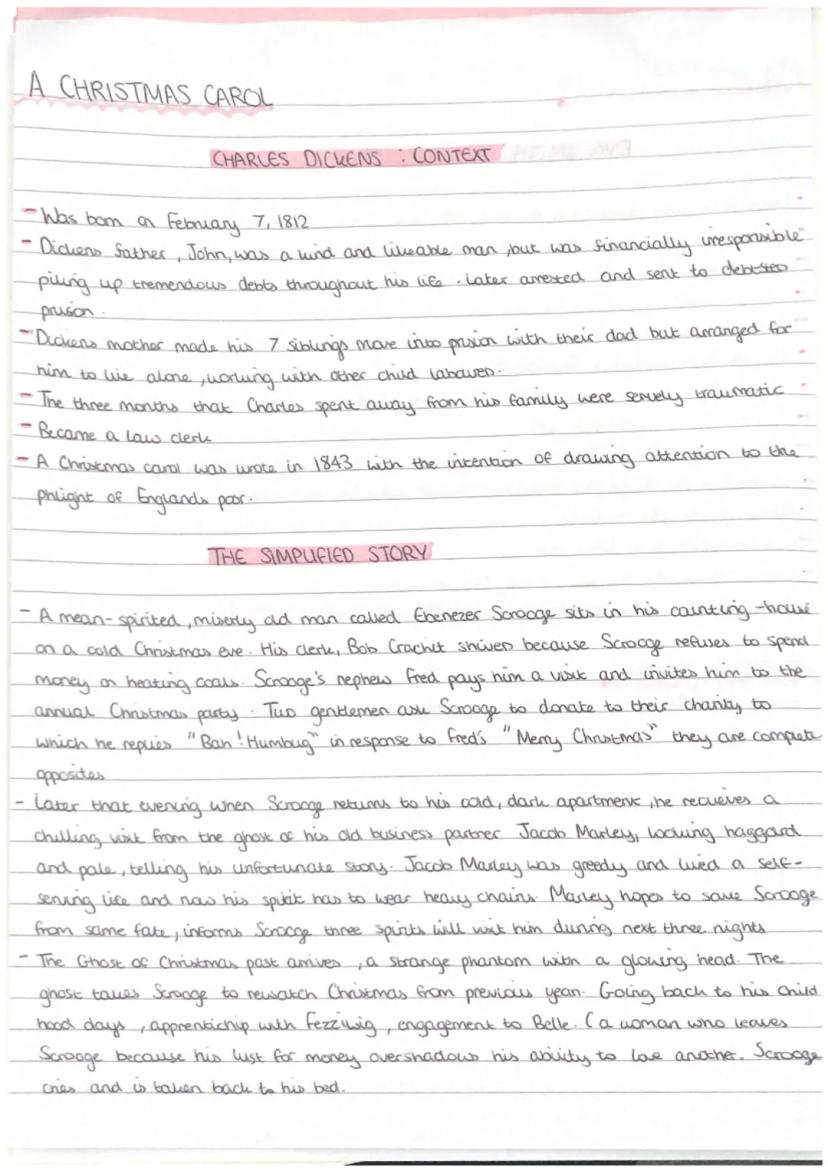 A CHRISTMAS CAROL
CHARLES DICKENS : CONTEXT
- Was born on February 7, 1812
- Dickens father, John, was a kind and likeable man, but was financially irresponsible
piling up tremendous debts throughout his life. Later arrested and sent to
prison.
- Dickens mother made his 7 siblings move into prision with their dad but arranged for
him to live alone, working with other child labourers.
- The three months that Charles spent away from his family were servely traumatic
- Became a law clerk
- A Christmas carol was wrote in 1843 with the intention of drawing attention to the
phlight of Englands poor.
THE SIMPLIFIED STORY
- A mean-spirited, miserly old man called Ebenezer Scrooge sits in his counting-house
on a cold Christmas eve. His clerk, Bob Crachit shivers because Scrooge refuses to spend
money on heating coals. Scrooge's nephew Fred pays him a visit and invites him to the
annual Christmas party. Two gentlemen ask Scrooge to donate to their charity to
which he replies "Bah! Humbug" in response to Fred's "Merry Christmas" they are complete
opposites
- Later that evening when Scrooge returns to his cold, dark apartment, he recieves a
chilling visit from the ghost of his old business partner Jacob Marley, looking haggard
and pale, telling his unfortunate story. Jacob Marley was greedy and lived a self-
serving life and now his spirit has to wear heavy chains. Marley hopes to save Scrooge
from same fate, informs Scrooge three spirits will visit him during next three nights
- The Ghost of Christmas past arrives, a strange phantom with a glowing head. The
ghost takes Scrooge to rewatch Christmas from previous years. Going back to his child
hood days, apprentichip with Fezziwig, engagement to Belle. (a woman who leaves
Scrooge because his lust for money overshadows his ability to love another. Scrooge
cries and is taken back to his bed.